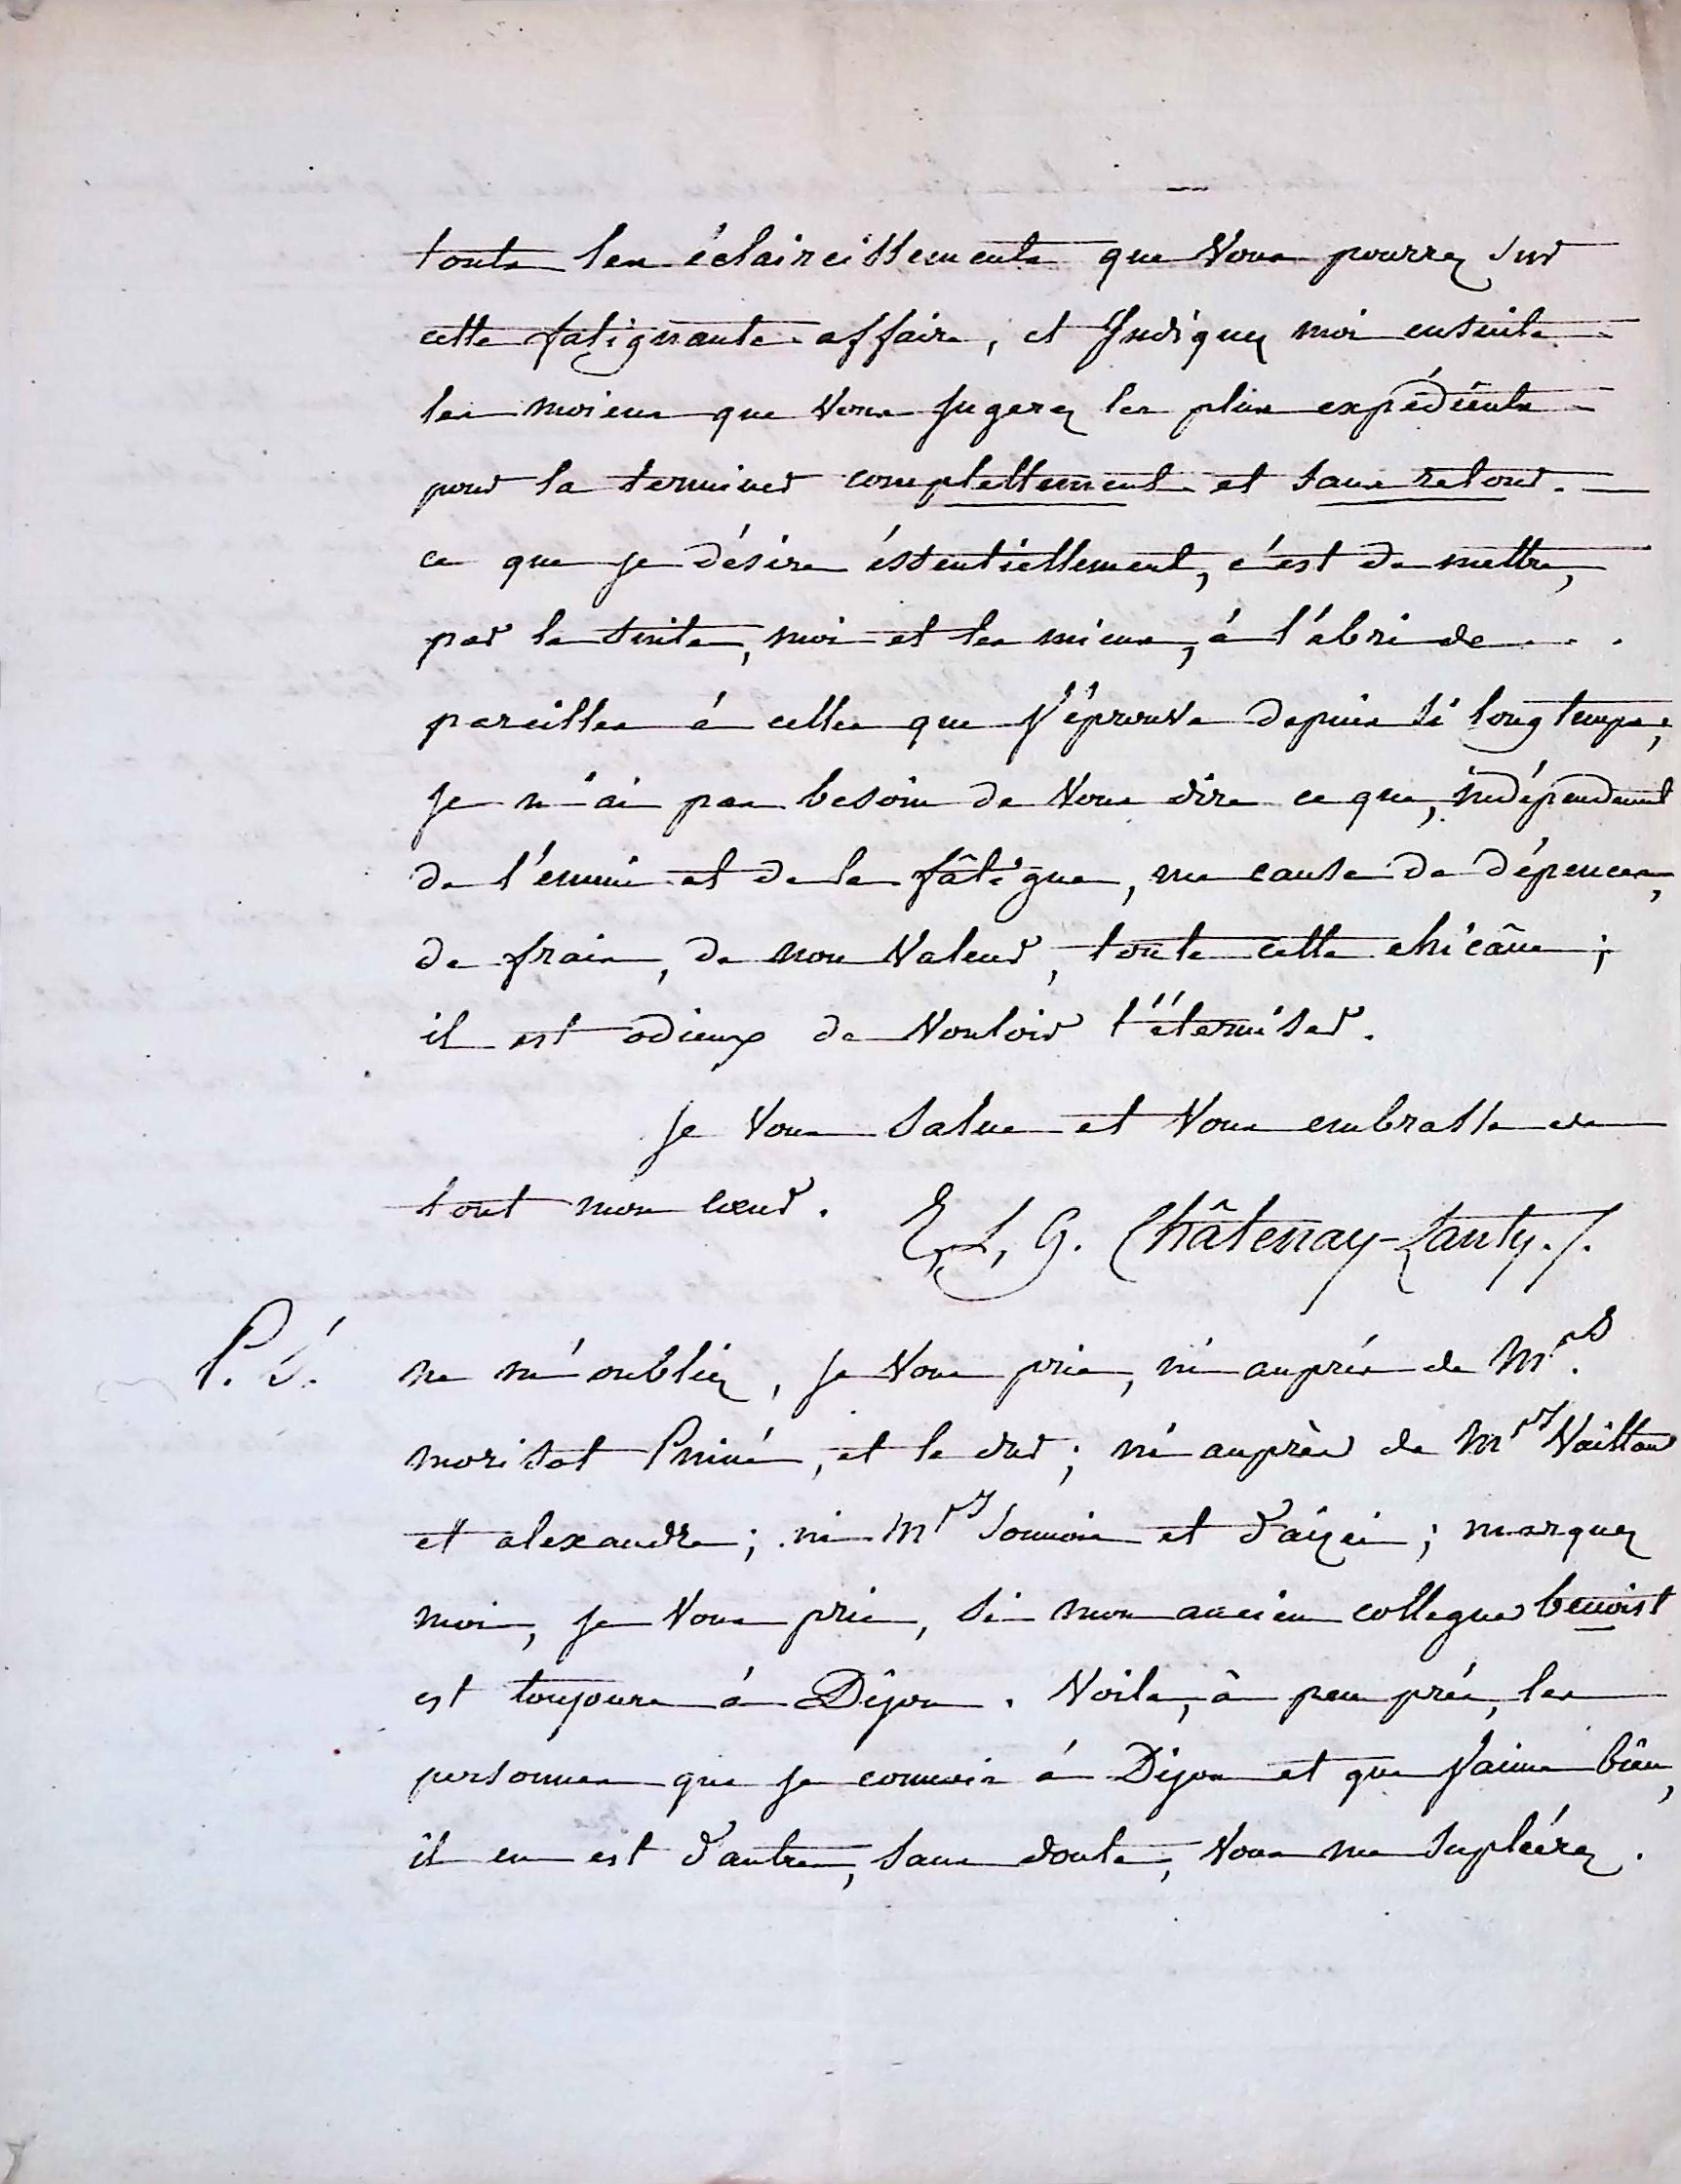 touts les éclaircissements que Vous pourrez sur
cette fatignante affaire, et Indiquez moi ensuite
les moiens que Vous Jugerez les plus expédients
pour la terminer complettement et sans retour.
ce que je désire éssentiellement, c'est de mettre,
par la suite, moi et les miens, à l'abri de . .
pareilles à celles que J'éprouve depuis si longtemps;
Je n'ai pas besoin de Vous dire ce que, indépendament
de l'ennui et de la fâtigue, me cause de dépences,
de frais, de non Valeur, toute cette chicâne;
il est odieux de Vouloir l'éterniser.
Je Vous Salue et Vous embrasse de
tout mon coeur. E, L, G. Châtenay-Lanty./.
P. S. ne m'oubliez, Je Vous prie, ni auprés de Mrs.
morisot l'ainé, et le ; ni auprès de Mrs Vaillant
et alexandre; ni Mrs et ; marquez
moi, Je Vous prie, si mon ancien collegue benoist
est toujours à Dijon. Voila, à peu prés, les
personnes que Je connois à Dijon et que J'aime bien,
il en est d'autres, sans doute, Vous me supléérez.